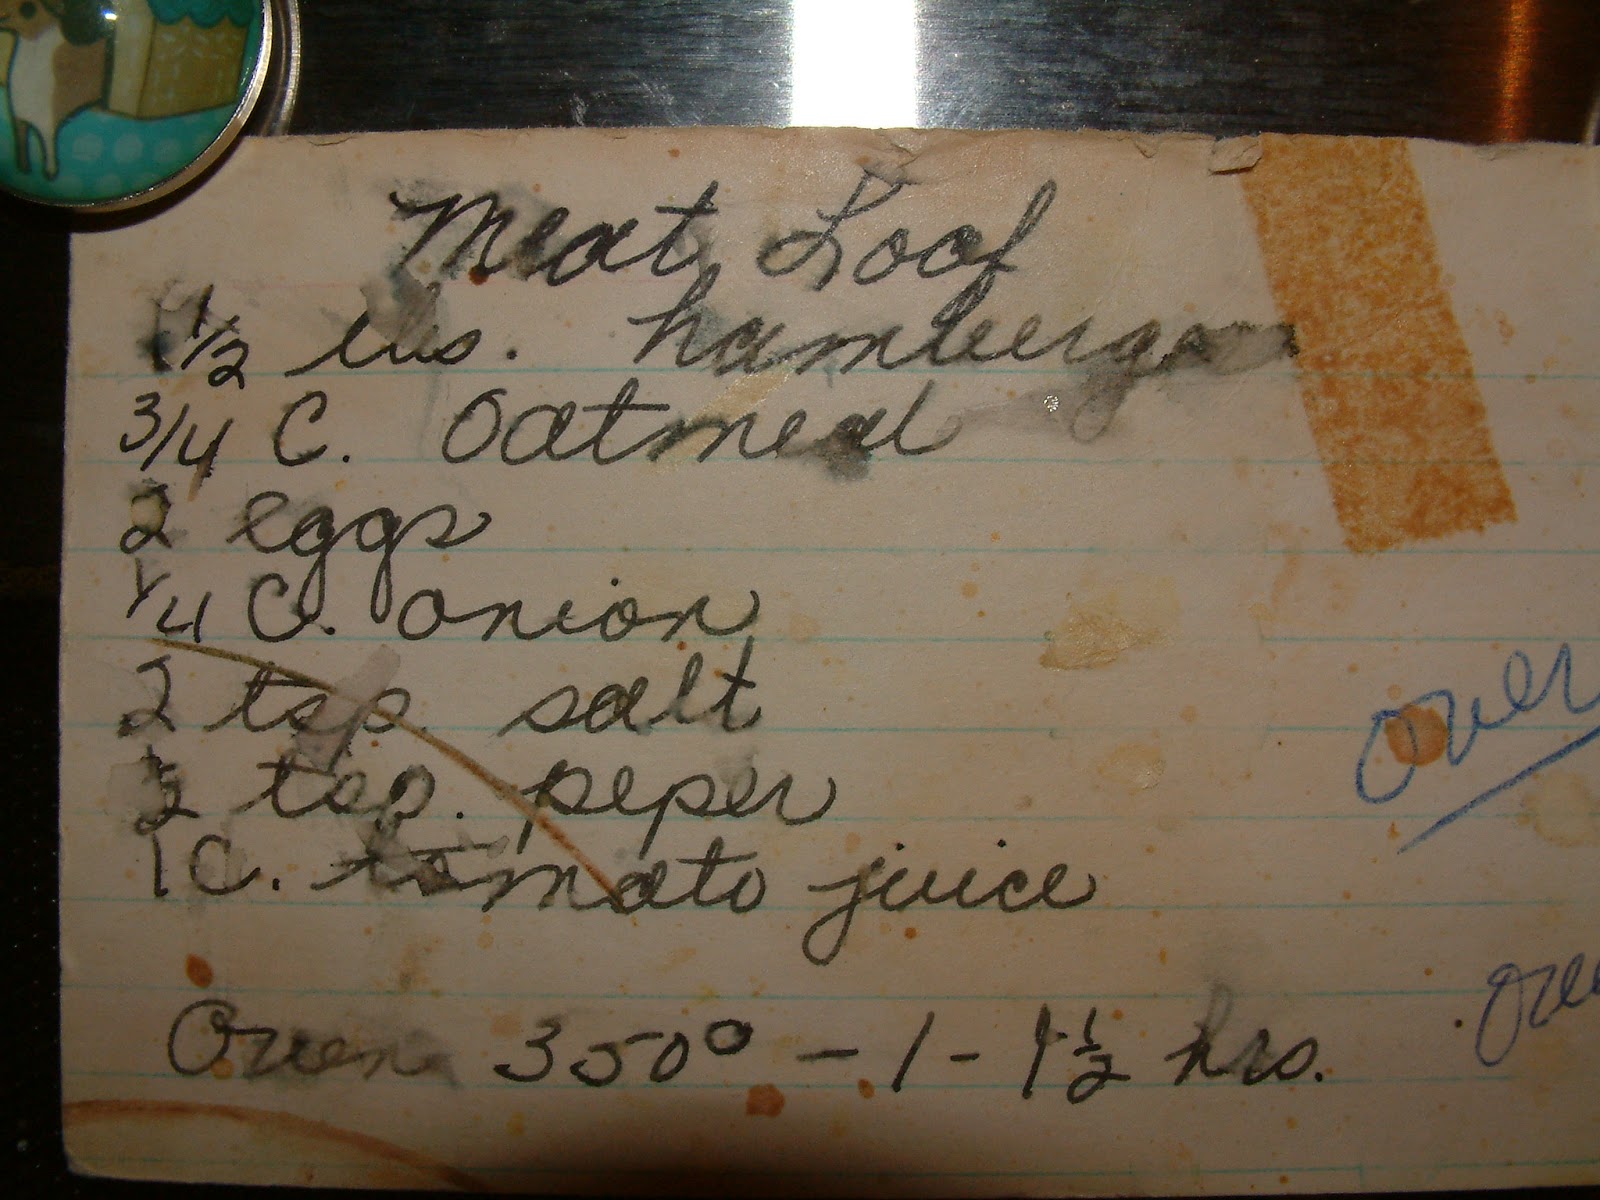 Meat Loaf
1 1/2 lbs. hamberger
3/4 C. Oatmeal
2 eggs
1/4 C. onion
2 tsp. salt
1/2 tsp. peper
1 C. tomato juice
over
Oven 350° - 1 - 1 1/2 hrs.